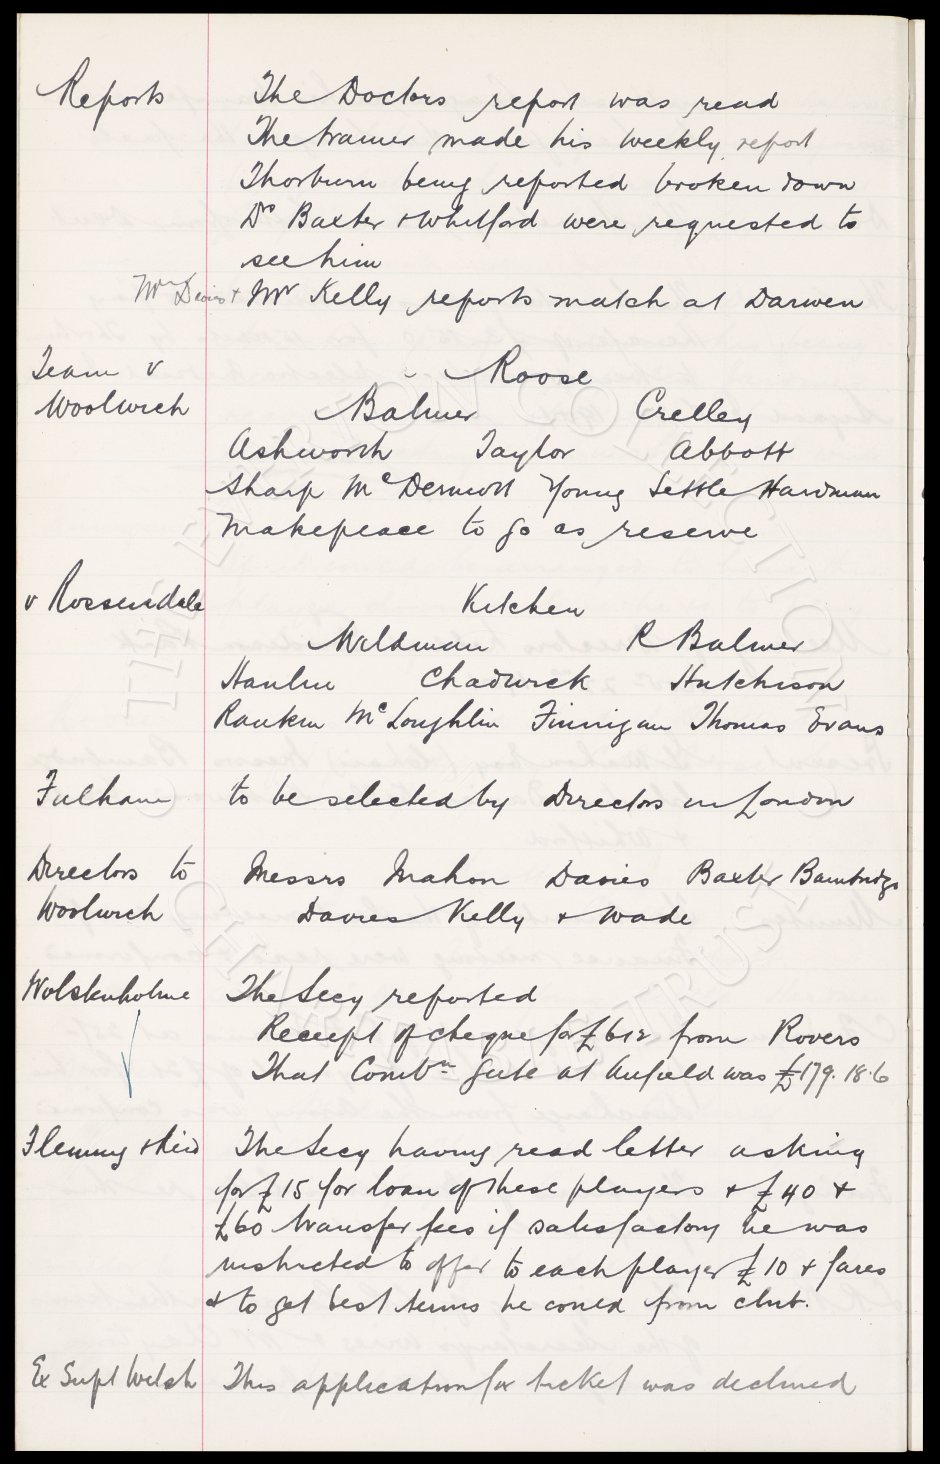 Reports The Doctors report was read
The trainer made his weekly report
Thorburn being reported broken down
Drs Baxter & Whitford were requested to
see him
Mr Davies & Mr Kelly reports match at Darwen
Team v Roose
Woolwich Balmer Crelley
Ashworth Taylor Abbott
Sharp McDermott Young Settle Hardman
Makepeace to go as reserve
v Rossendale Kitchen
Wildman R Balmer
Hanlin Chadwick Hutchison
Rankin McLoughlin Finnigan Thomas Evans
Fulham to be selected by Directors in London
Directors to Messrs Mahon Davies Baxter Bainbridge
Woolwich Davies Kelly & Wade
Wolstenholme The Secy reported
Receipt of cheque for £612 from Rovers
That Combn Gate at Anfield was £179.18.6
Fleming & Reid The Secy having read letter asking
for £15 for loan of these players & £40 &
£60 transfer fees if satisfactory he was
instructed to offer to each player £10 & fares
& to get best terms he could from club.
Ex Supt Welsh This application for ticket was declined
EVERTON COLLECTION
CHARITABLE TRUST